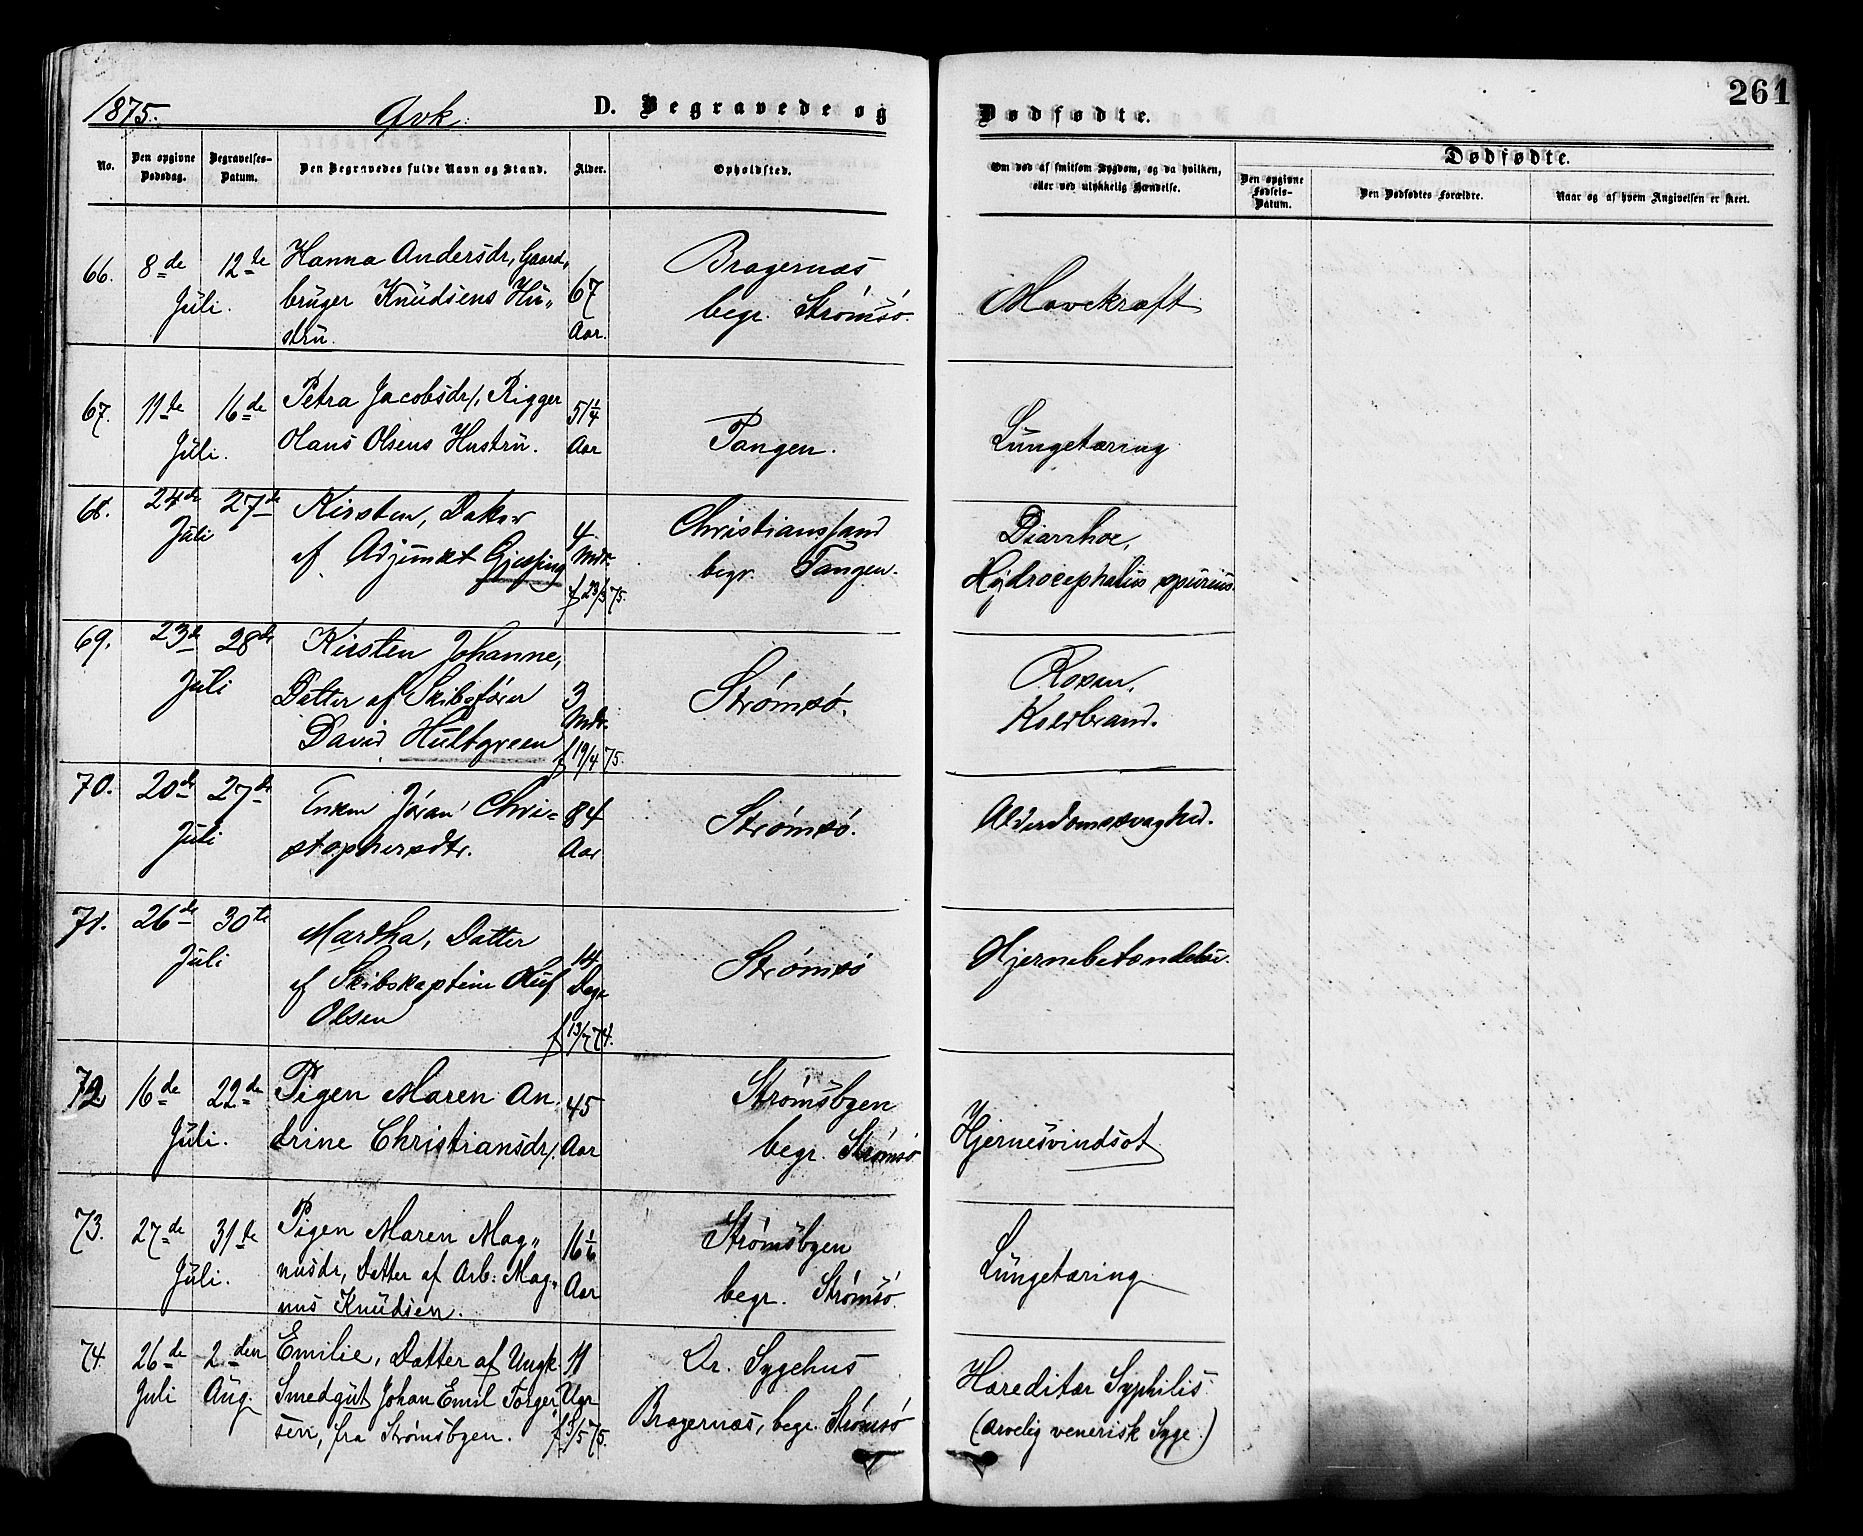 1875. Qvk: D. Begravede og Dødfødte. 261
No. Den opgivne Dødsdag. Begravelses-Datum. Den Begravedes fulde Navn og Stand. Alder. Opholdsted. Om død af smitsom Sygdom, og da hvilken, eller ved ulykkelig Hændelse. Dødfødte.
Den opgivne Fødsels-Datum. Den Dødfødtes Forældre. Naar og af hvem Angivelsen er skeet.
66. 8de 12te Hanna Andersdr, Gaard, Bragernæs
Juli. bruger Knudsens Hu„ 67 begr. Strømsö. Mavekræft
stru. Aar.
67. 11te 16de Petra Jacobsdr/, Rigger 51 1/4
Juli. Hans Olsens Hustru. Aar Tangen. Lungetæring
68. 24de 27de Kirsten, Datter 4 Christianssand Diarrhoe,
Juli af Adjunkt Gjessing Mdr. begr. Tangen. Hydrocephalus spurius.
f 23/3 75.
69. 23de 28de Kirsten Johanne,
Juli Datter af Skibsfører 3 Strømsø. Rosen,
David Hultgreen Mdr. Koldbrand.
f 19/4 75.
70. 20de 27de Enken Jöran Chri= 84 Strømsø. Alderdomssvaghed.
Juli stophersdtr. Aar
71. 26de 30te Martha, Datter 14 Strømsø Hjernebetændelse.
Juli af Skibskaptein Oluf Dage
Olsen f 13/7 74.
72 16de 22de Pigen Maren An 45 Strömsbyen
Juli. drine Christiansdr/. Aar begr. Strømsö Hjernesvindsot
73. 27de 31te Pigen Maren Mag„ 16 1/6 Strømsbyen
Juli. nusdr, Datter af Arb: Mag„ Aar begr. Strømsö. Lungetæring
nus Knudsen.
74. 26de 2den Emilie, Datter af Ungk 11 Dr. Sygehus Hæreditær Syphilis
Juli Aug. Smedgut Johan Emil Torger Uger Bragernæs, begr. Strömsö (arvelig venerisk Syge.)
sen, fra Strømsbyen. f 5/5 75.